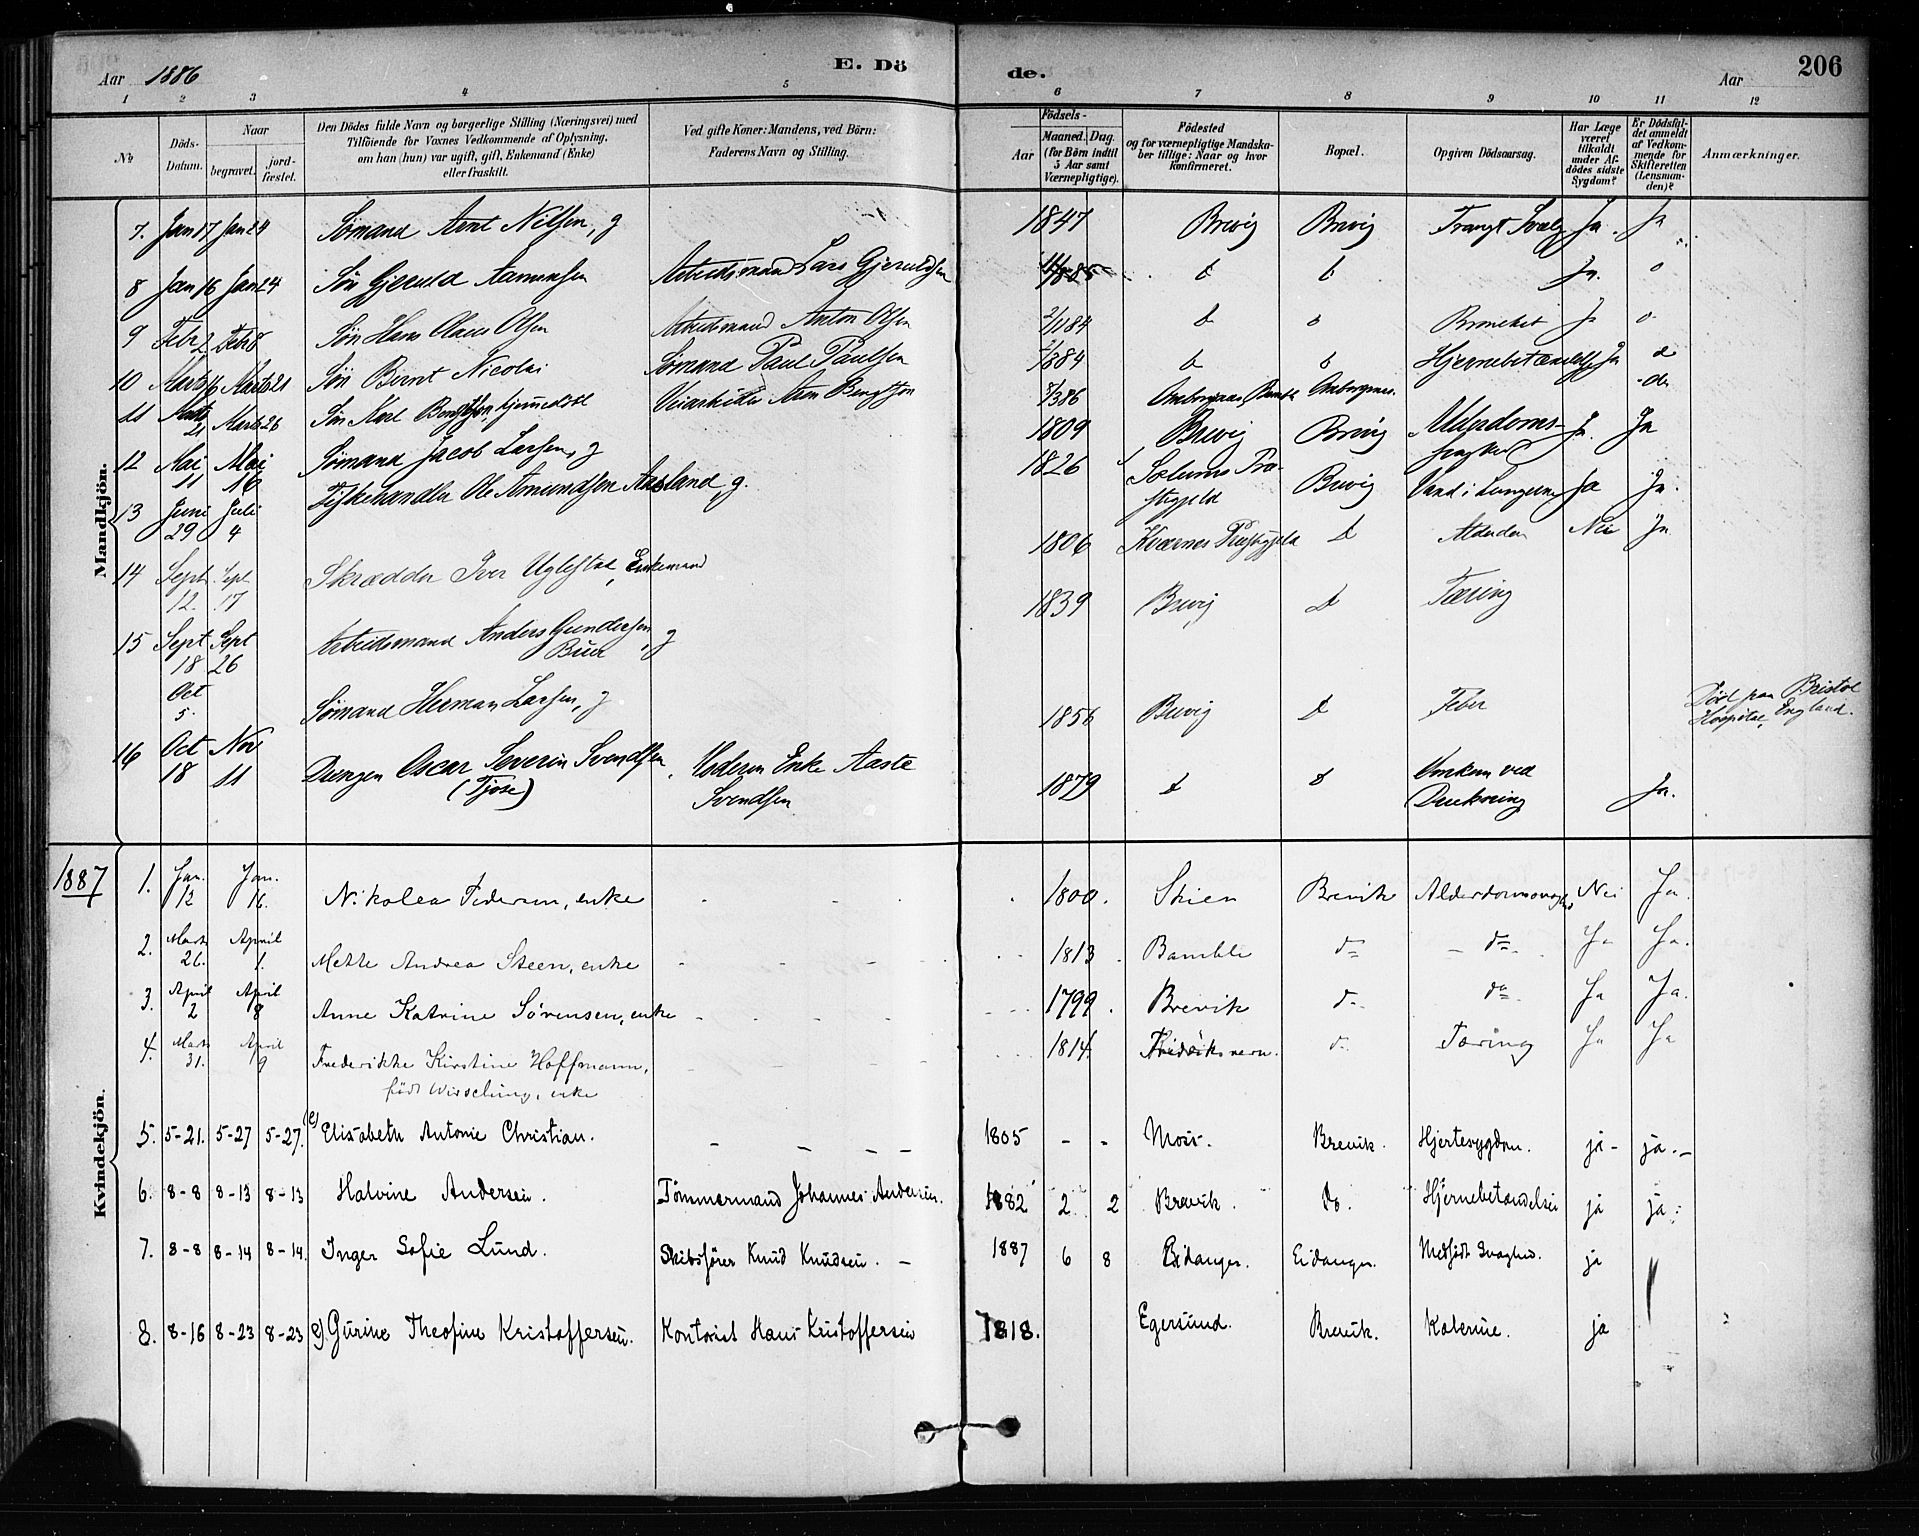 Aar 1886
E. Dö
de.
Aar
206
1 2 3 4 5 6 7 8 9 10 11 12
No
Döds-Datum.
Naar
begravet.
jord-fæstet.
Den Dödes fulde Navn og borgerlige Stilling (Næringsvei) med
Tilföiende for Voxnes Vedkommende af Oplysning,
om han (hun) var ugift, gift, Enkemand (Enke)
eller fraskilt.
Ved gifte Koner: Mandens, ved Börn:
Faderens Navn og Stilling.
Födsels-
Aar
Maaned. Dag.
(for Börn indtil
5 Aar samt
Værnepligtige).
Födested
og for værnepligtige Mandska-
ber tillige: Naar og hvor
konfirmeret.
Bopæl.
Opgiven Dödsaarsag.
Har Læge
været
tilkaldt
under Af-
dödes sidste
Sygdom?
Er Dödsfal-
det anmeldt
af Vedkom-
mende for
Skifteretten
(Lensman-
den)?
Anmærkninger.
Mandkjön.
7. Jan 17 Jan 24 Sømand Arnt Nilsen, g 1847 Brevig Brevig Trangt Svælg Ja. Ja
8 Jan 16 Jan 24 Søn Gjeruld Aamundsen Arbeidsmand Lars Gjeruldsen Ja.
9 Febr 2 Febr 8 Søn Hans Olaus Olsen Arbeidsmand Anton Olsen 2/11 84 Bronchit Ja
10 Marts 16 Marts 21 Søn Bernt Nicolai Sømand Paul Paulsen Hjernebetændelse Ja
11 Marts 21 Marts 26 Søn Karl Bengtson, hjemmedøbt Veiarbeider Aron Bengtson 8/3 86
12 Mai 11 Mai 16 Sømand Jacob Larsen, g 1809 Brevig Brevig Alderdoms- Ja. Ja
13 Juni 29 Juli 4 Fiskehandler Ole Amundsen Aasland, g. 1826 Solums Præstegjeld Brevig Vand i Lungerne Ja Ja.
14 Sept 12. Sept 17 Skrædder Iver Uglestad, Enkemand 1806 Kværnes Præstegjeld Alderdom Nei Ja
15 Sept 18 Sept 26 Arbeidsmand Anders Gundersen Buer, g 1839 Brevig Tæring
Oct 5. Sømand Herman Larsen, g 1856 Brevig Feber Død paa Bristol Hospital, England.
16 Oct 18 Nov 11 Drengen Oscar Severin Svendsen (Tjøse) Moderen Enke Aaste Svendsen 1879 Omkom ved Drukning Ja.
1887
Kvindekjön.
1. Jan. 12 Jan. 16. Nikolea Pedersen, enke 1800. Skien Brevik Alderdomssvaghed Nei Ja.
2. Marts 26. April 1. Mette Andrea Steen, enke 1813 Bamble do do Ja Ja.
3. April 2 April 8 Anne Katrine Sørensen, enke 1799 Brevik do do Ja Ja.
4. Marts 31. April 9 Frederikke Kirstine Hoffmann, født Wisseling, enke 1814 Fredriksvern. do Tæring Ja Ja
5. 5-21. 5-27 5-27. (e) Elisabeth Antonie Christian. 1805 - - Moss. Brevik. Hjertesygdom. ja - ja. -
6. 8-8 8-13 8-13 Halvine Andersen. Tømmermand Johannes Andersen. 1882 2 2 Brevik. do. Hjernebetændelse ja ja.
7. 8-8 8-14 8-14. Inger Sofie Lund. Skibsfører Knud Knudsen. - 1887 6 8 Eidanger. Eidanger. Medfødt Svaghed. ja
8. 8-16 8-23 8-23 e) Gurine Theofine Kristoffersen. Kontorist Hans Kristoffersen 1818. Egersund. Brevik. Kolerine. ja